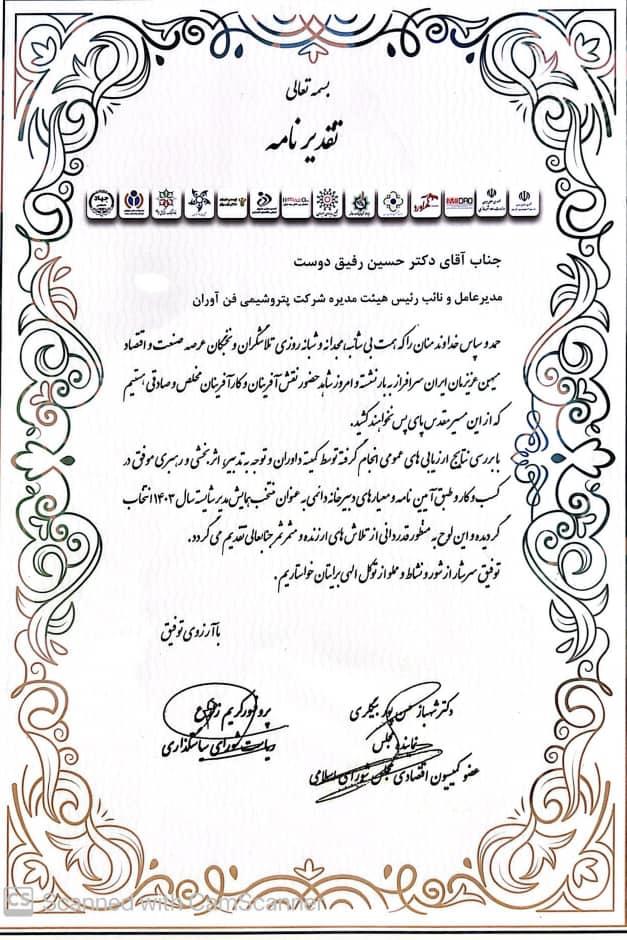 بسمه تعالی
تقدیر نامه
جناب آقای دکتر حسین رفیق دوست
مدیرعامل و نائب رئیس هیئت مدیره شرکت پتروشیمی فن آوران
حمد و سپاس خداوند منان را که همت بی شائبه، مجدانه و شبانه روزی تلاشگران و نخبگان عرصه صنعت و اقتصاد
میهن عزیزمان ایران سرافراز به بار نشسته و امروز شاهد حضور نقش آفرینان و کارآفرینان مخلص و صادقی هستیم
که از این مسیر مقدس پای پس نخواهند کشید.
با بررسی نتایج ارزیابی های عمومی انجام گرفته توسط کمیته داوران و توجه به تدبیر، اثربخشی و رهبری موفق در
کسب و کار و طبق آئین نامه و معیارهای دبیرخانه دائمی به عنوان منتخب همایش مدیر شایسته سال ۱۴۰۳ انتخاب
گردیده و این لوح به منظور قدردانی از تلاش های ارزنده و مثمر ثمر جنابعالی تقدیم می گردد.
توفیق سرشار از شور و نشاط و مملو از توکل الهی برایتان خواستاریم.
با آرزوی توفیق
دکتر شهباز حسن پور بیگلری
نماینده مجلس
عضو کمیسیون اقتصادی مجلس شورای اسلامی
پروفسور کریم
ریاست شورای سیاستگذاری
CS Scanned with CamScanner